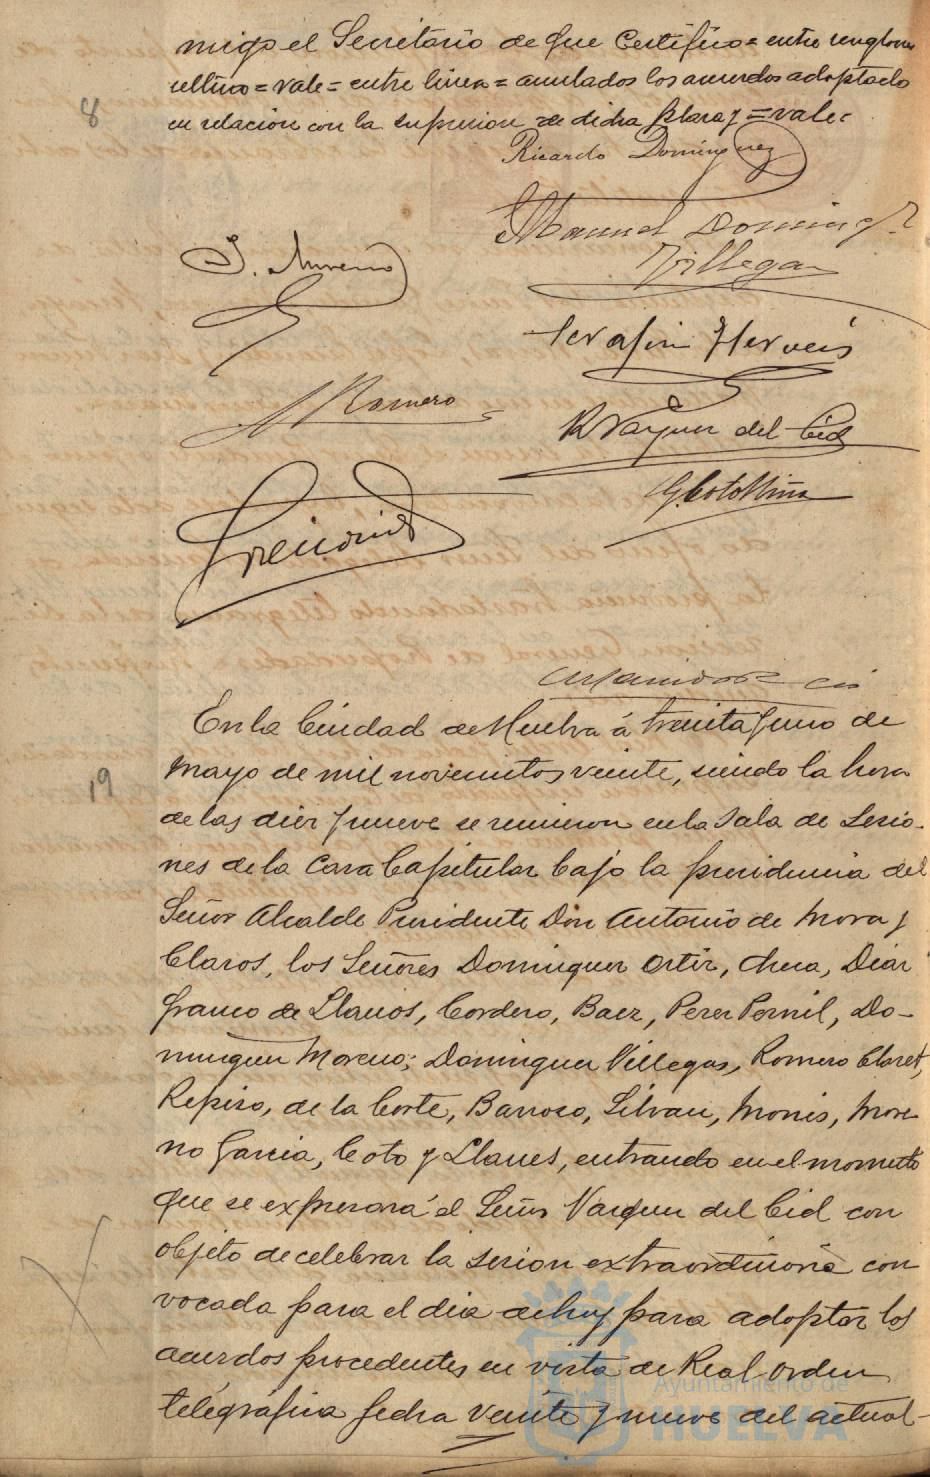 migo el Secretario de que Certifico = entre renglones
ultimo = vale = entre linea = anulados los acuerdos adoptado
en relacion con la supresion de dicha plaza y = vale =
8
Ricardo Dominguez
Manuel Doming
Villegas
J. Moreno
Serafin
Romero
R Vazquez del Cid
G. Coto
En la Ciudad de Huelva á treinta y uno de
Mayo de mil novecientos veinte, siendo la hora
19
de las diez y nueve se reunieron en la Sala de Sesio-
nes de la Casa Capitular bajo la presidencia del
Señor Alcalde Presidente Don Antonio de Mora y
Claros, los Señores Dominguez Ortiz, Checa, Diaz
franco de Llanos, Cordero, Baez, Perez Pernil, Do-
minguez Moreno; Dominguez Villegas, Romero Claret,
Repiso, de la Corte, Barroso, Silvan, Monis, More
no Garcia, Coto y Llanes, entrando en el momento
que se expresará el Señor Vazquez del Cid con
objeto de celebrar la sesion extraordinaria con
vocada para el dia de hoy para adoptar los
acuerdos procedentes en vista de Real orden
telegráfica fecha veinte y nueve del actual-
Ayuntamiento de
HUELVA